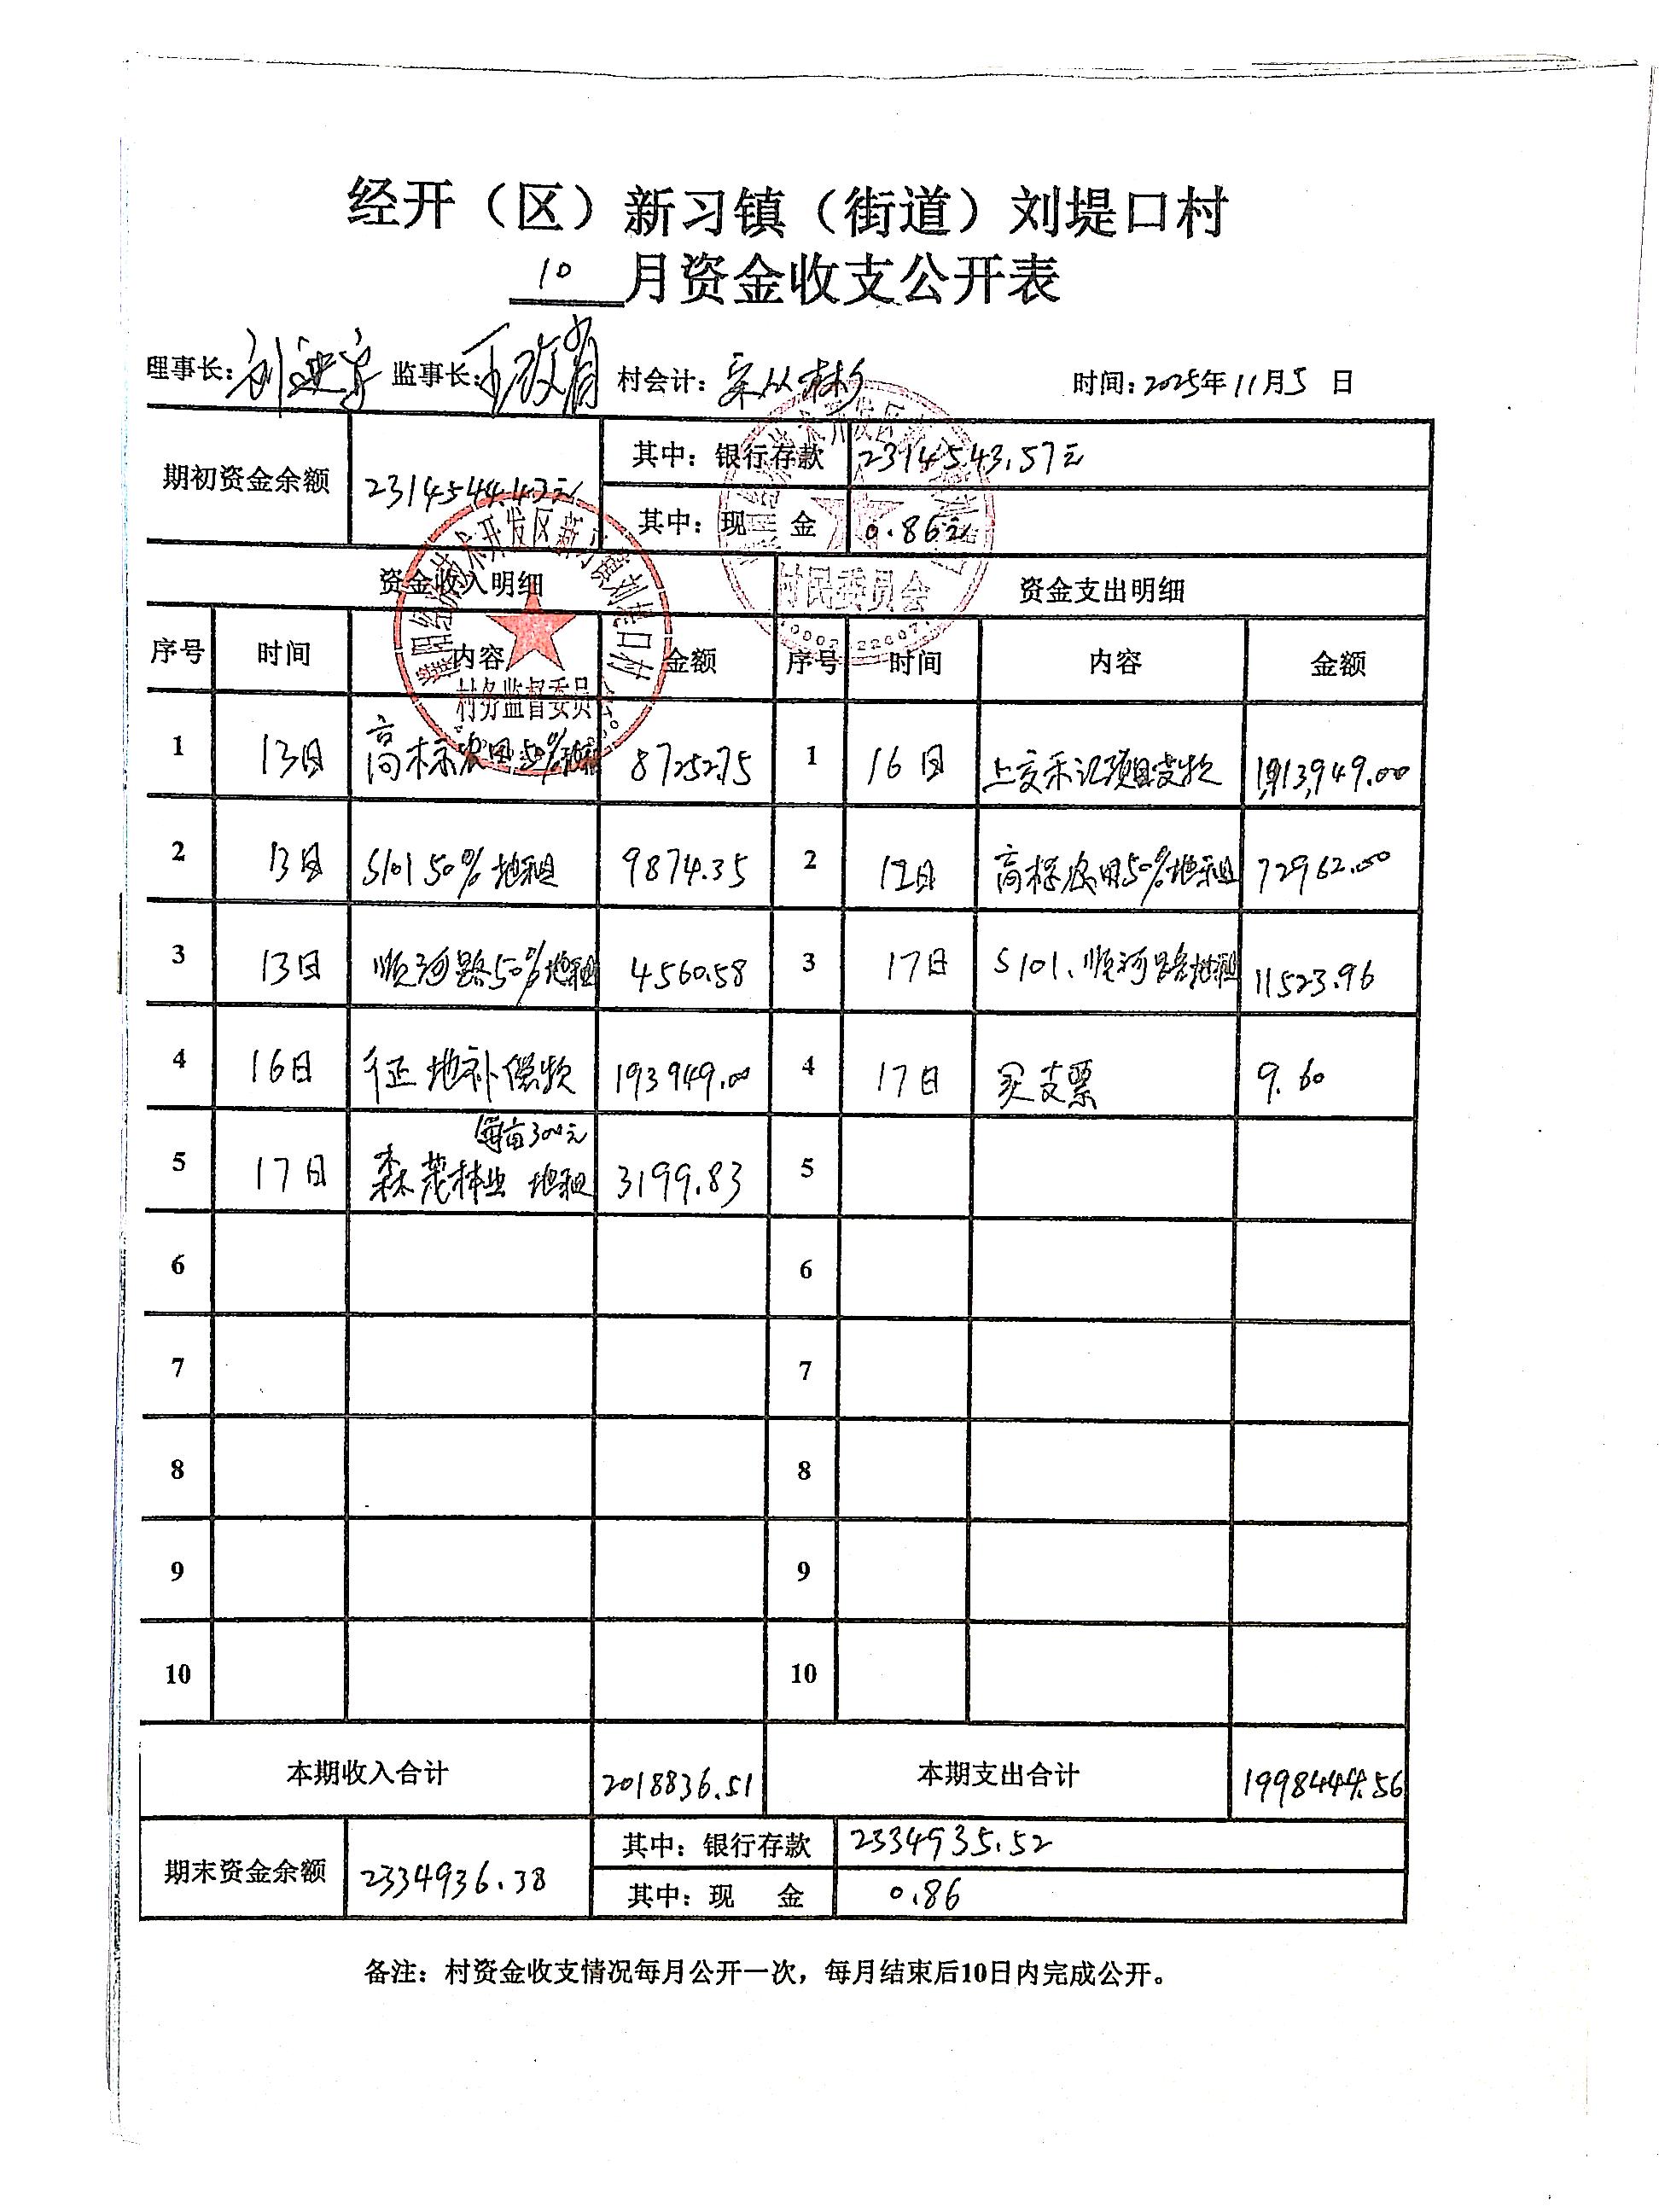 经开（区）新习镇（街道）刘堤口村
10 月资金收支公开表
理事长： 监事长： 村会计： 时间：2025年11月5日
期初资金余额 2314544.43元 其中：银行存款 2314543.57元
其中：现 金 0.86元
资金收入明细 资金支出明细
序号 时间 内容 金额 序号 时间 内容 金额
1 13日 高标农田50%地租 87252.75 1 16日 1,913,949.00
2 13日 S101 50%地租 9874.35 2 17日 高标农田50%地租 72962.00
3 13日 顺河路50%地租 4560.58 3 17日 S101、顺河路地租 11523.96
4 16日 征地补偿款 193949.00 4 17日 买支票 9.60
5 17日 森茂林业 每亩300元 地租 3199.83 5
6 6
7 7
8 8
9 9
10 10
本期收入合计 2018836.51 本期支出合计 1998444.56
期末资金余额 2334936.38 其中：银行存款 2334935.52
其中：现 金 0.86
备注：村资金收支情况每月公开一次，每月结束后10日内完成公开。
濮阳经济技术开发区新习镇刘堤口村
村务监督委员会
村民委员会